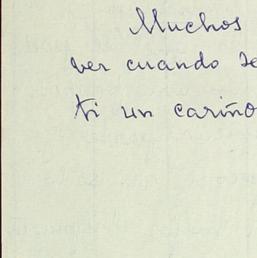 Muchos
ver cuando se
ti un cariño